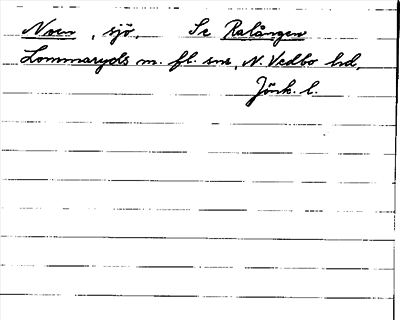 Noen, sjö, Se Ralången
Lommaryds m. fl. snr, N. Vedbo hd,
Jönk. l.